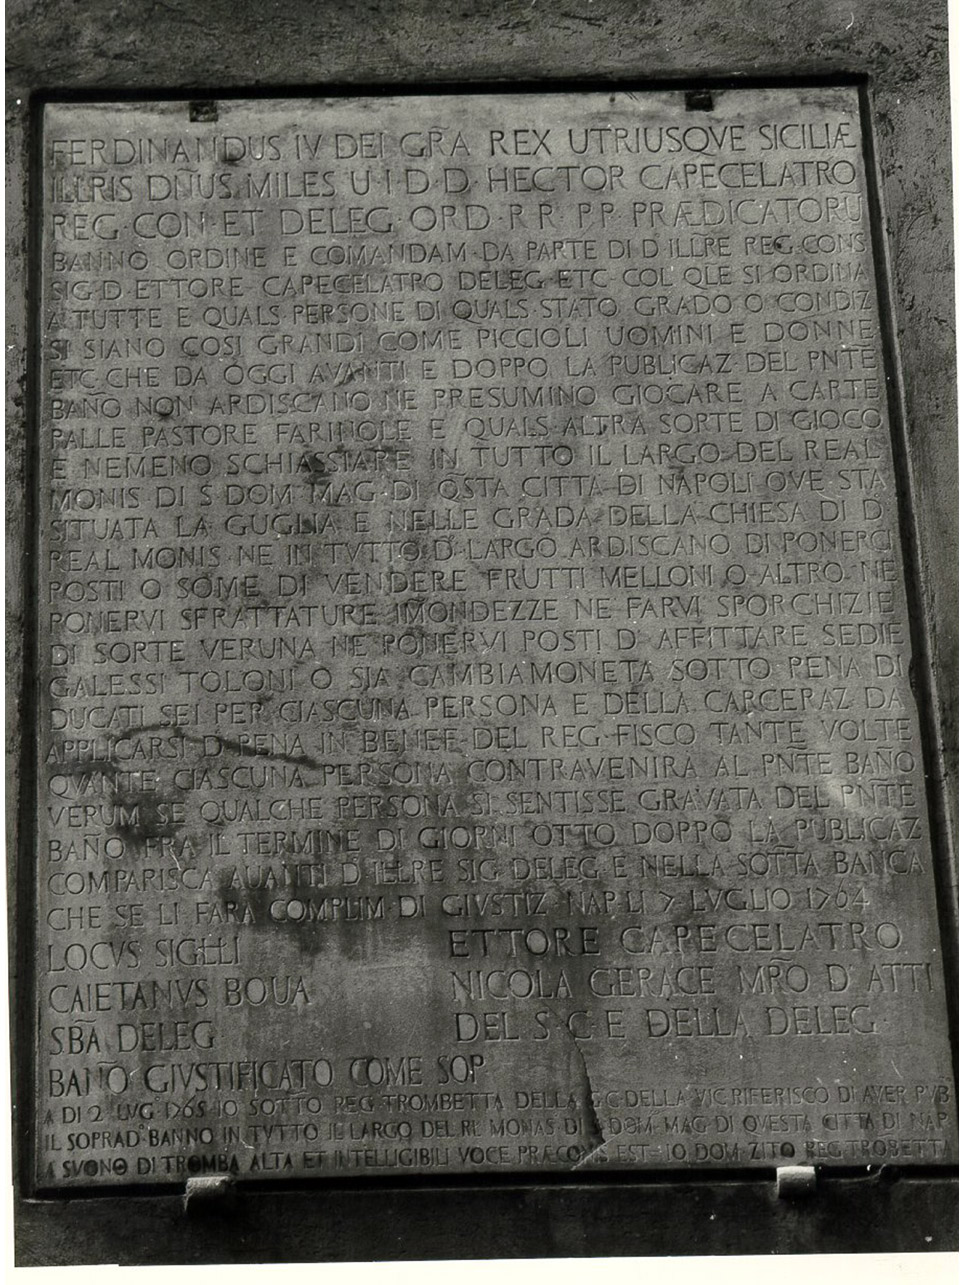 FERDINANDUS IV DEI GR̃A REX UTRIUSQVE SICILIÆ
ILLRIS DÑUS MILES U·I·D·D· HECTOR CAPECELATRO
REG· CON· ET DELEG· ORD·R R·P P· PRÆDICATORU
BANNO ORDINE E COMANDAM·DA PARTE DI D·ILLRE REG·CONS
SIG·D·ETTORE CAPECELATRO DELEG·ETC·COL QLE SI ORDINA
A TUTTE E QUALS·PERSONE DI QUALS·STATO GRADO O CONDIZ
SI SIANO COSI GRANDI COME PICCIOLI UOMINI E DONNE
ETC·CHE DA OGGI AVANTI E DOPPO LA PUBLICAZ·DEL PNTE
BAÑO NON ARDISCANO NE PRESUMINO GIOCARE A CARTE
PALLE PASTORE FARINOLE E QUALS·ALTRA SORTE DI GIOCO
E NEMENO SCHIASSARE IN TUTTO IL LARGO DEL REAL
MONIS·DI S·DOM·MAG·DI QSTA CITTA DI NAPOLI OVE STA
SITUATA LA GUGLIA E NELLE GRADA DELLA CHIESA DI D·
REAL MONIS·NE IN TVTTO D·LARGO ARDISCANO DI PONERCI
POSTI O SOME DI VENDERE FRUTTI MELLONI O·ALTRO·NE
PONERVI SFRATTATURE IMONDEZZE NE FARVI SPORCHIZIE
DI SORTE VERUNA NE PONERVI POSTI D'AFFITTARE SEDIE
GALESSI TOLONI O SIA CAMBIAMONETA SOTTO PENA DI
DUCATI SEI PER CIASCUNA PERSONA E DELLA CARCERAZ·DA
APPLICARSI D·PENA IN BENEF·DEL REG·FISCO TANTE VOLTE
QVANTE CIASCUNA PERSONA CONTRAVENIRA AL PÑTE BAÑO
VERUM SE QUALCHE PERSONA SI SENTISSE GRAVATA DEL PÑTE
BAÑO FRA IL TERMINE DI GIORNI OTTO DOPPO LA PUBLICAZ
COMPARISCA AUANTI D·ILLRE SIG·DELEG·E NELLA SOTTA BANCA
CHE SE LI FARA COMPLIM·DI GIVSTIZ·NAPLI 7 LUGLIO 1764
LOCVS SIGILLI ETTORE CAPECELATRO
CAIETANVS BOUA NICOLA GERACE MR̃O D'ATTI
SB̃A DELEG DEL S·C·E DELLA DELEG·
BAÑO GIVSTIFICATO COME SOP
A DI 2 LUG° 1765 IO SOTTO REG·TROMBETTA DELLA G·C·DELLA VIC·RIFERISCO DI AVER PVB
IL SOPRAD°BANNO IN TVTTO IL LARGO DEL RE MONAS·DI S·DOM·MAG·DI QVESTA CITTA DI NAP
A SVONO DI TROMBA ALTA ET INTELLIGIBILI VOCE PRÆCONIS EST·IO DOM·ZITO REG·TROBETTA